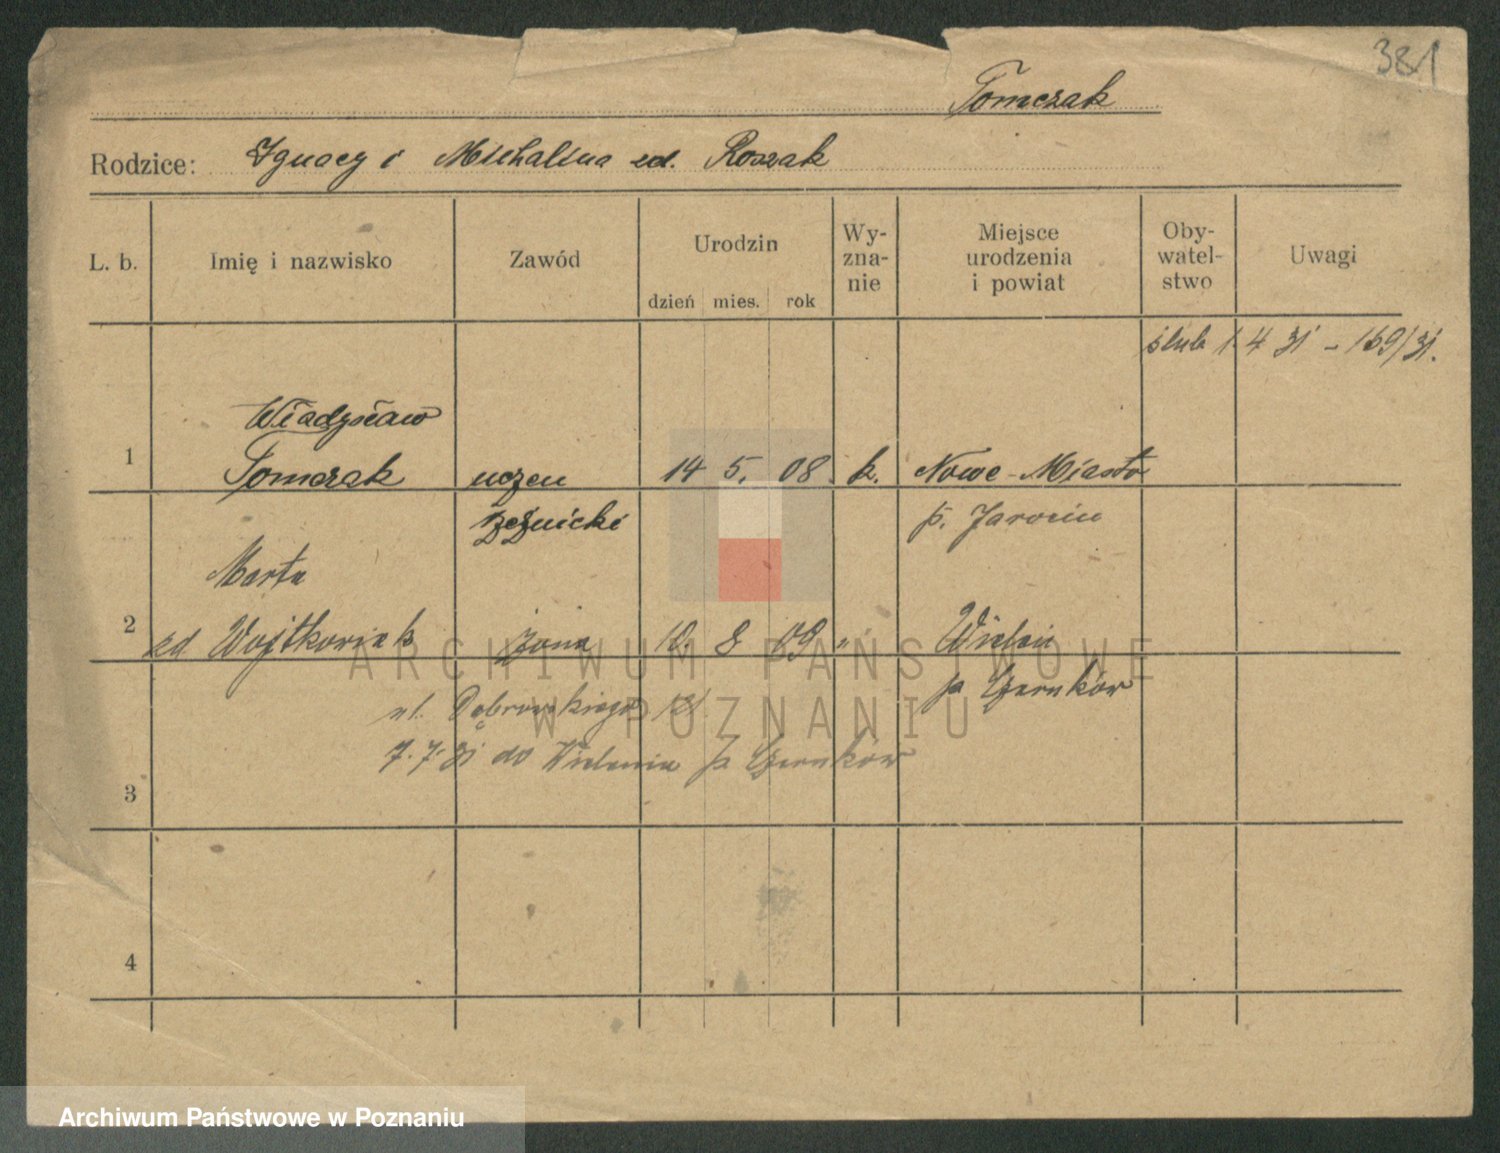 381
Tomczak
Rodzice: Ignacy i Michalina zd. Roszak
L. b.
Imię i nazwisko
Zawód
Urodzin
dzień mies. rok
Wy-
zna-
nie
Miejsce
urodzenia
i powiat
Oby-
watel-
stwo
Uwagi
ślub 1 4 31 – 169/31.
Władysław
1 Tomczak uczeń 14 5. 08. k. Nowe-Miasto
rzeźnicki p. Jarocin
Marta
2 zd Wojtkowiak żona 10. 8 09 " Wieleń
p Czarnków
ul. Dąbrowskiego 12/
7.7.31 do Wielenia p Czarnków
3
4
ARCHIWUM PAŃSTWOWE
W POZNANIU
Archiwum Państwowe w Poznaniu